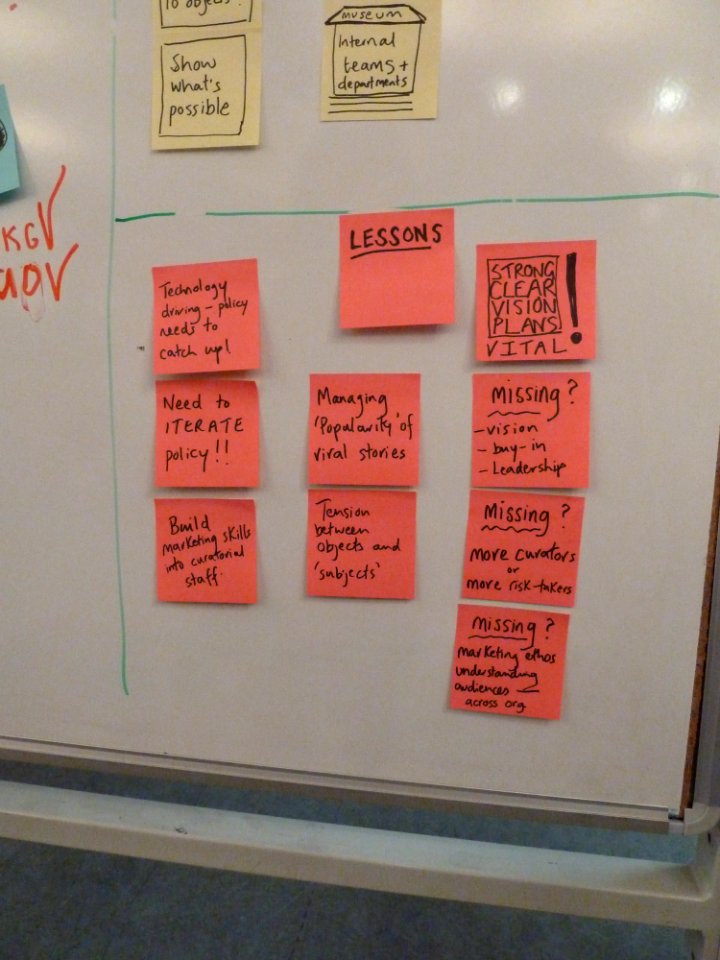 to objects?
Show
what's
possible
museum
Internal
teams +
departments
KG
LESSONS
Technology
driving - policy
needs to
catch up!
Need to
ITERATE
policy!!
Build
marketing skills
into curatorial
staff.
Managing
'Popularity' of
viral stories
Tension
between
objects and
'subjects'
STRONG
CLEAR
VISION
PLANS
VITAL!
Missing?
- vision
- buy-in
- Leadership
Missing?
more curators
or
more risk-takers
missing?
marketing ethos
understanding
audiences —
across org